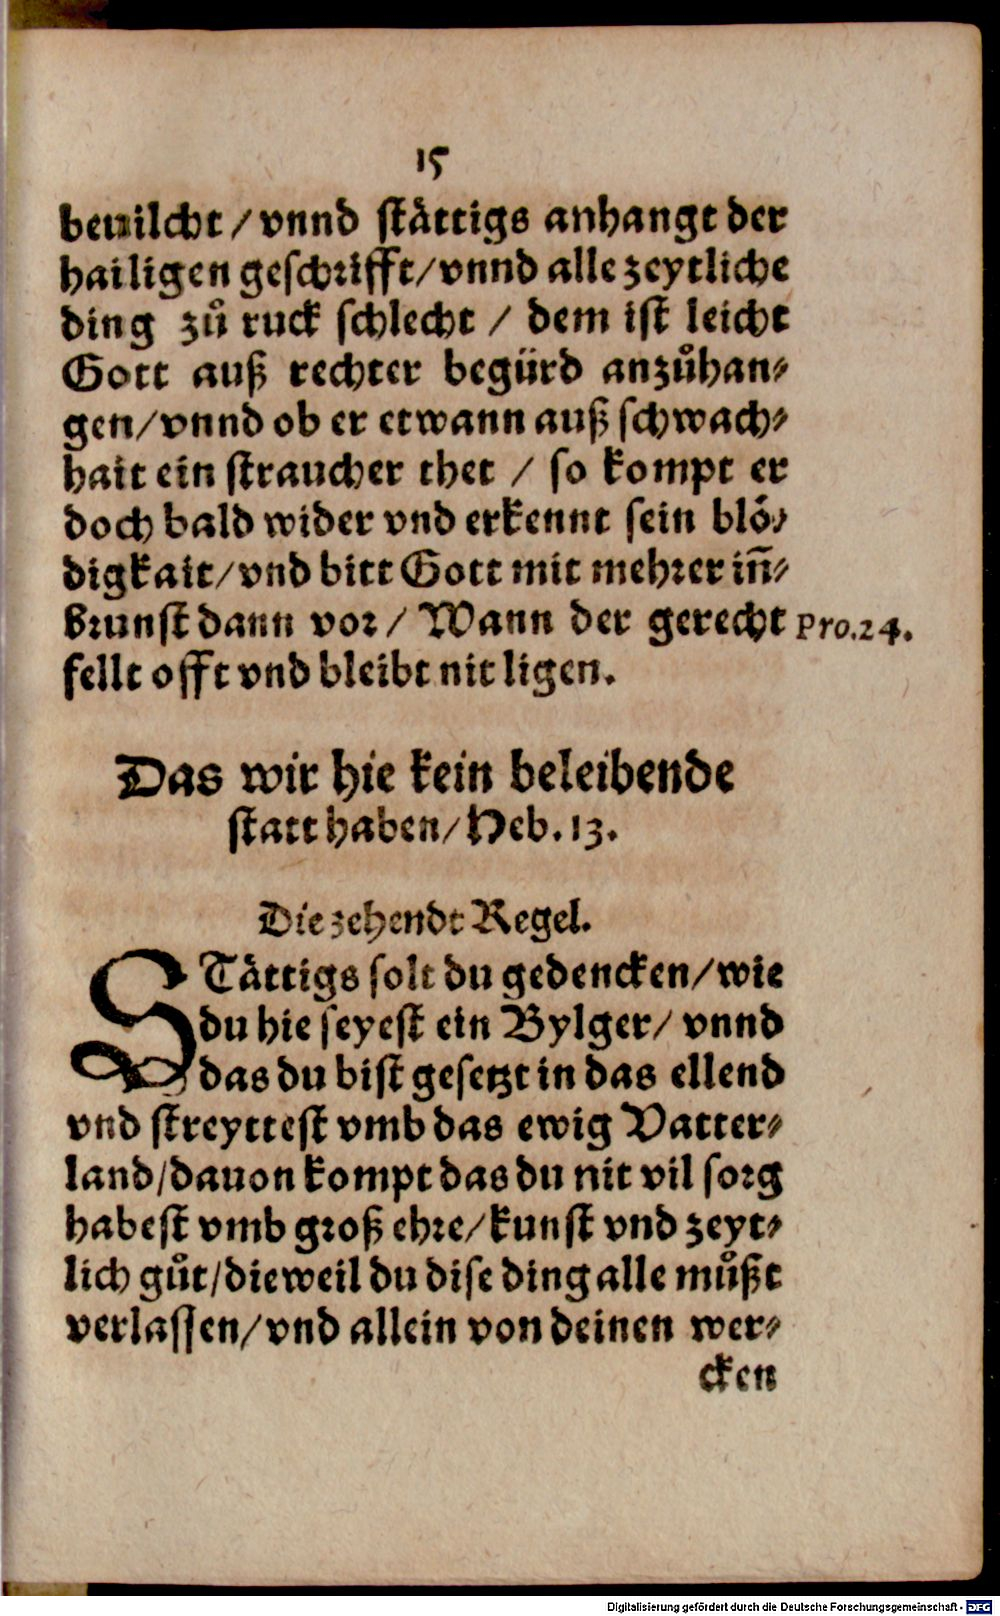 15
beuilcht / vnnd ståttigs anhangt der
hailigen geschrifft / vnnd alle zeytliche
ding zů ruck schlecht / dem ist leicht
Gott auß rechter begürd anzůhan-
gen / vnnd ob er etwann auß schwach-
hait ein straucher thet / so kompt er
doch bald wider vnd erkennt sein blö-
digkait / vnd bitt Gott mit mehrer iñ-
brunst dann vor / Wann der gerecht Pro.24.
fellt offt vnd bleibt nit ligen.
Das wir hie kein beleibende
statt haben / Heb. 13.
Die zehendt Regel.
STåttigs solt du gedencken / wie
du hie seyest ein Bylger / vnnd
das du bist gesetzt in das ellend
vnd streyttest vmb das ewig Vatter-
land / dauon kompt das du nit vil sorg
habest vmb groß ehre / kunst vnd zeyt-
lich gůt / dieweil du dise ding alle můßt
verlassen / vnd allein von deinen wer-
cken
Digitalisierung gefördert durch die Deutsche Forschungsgemeinschaft - DFG